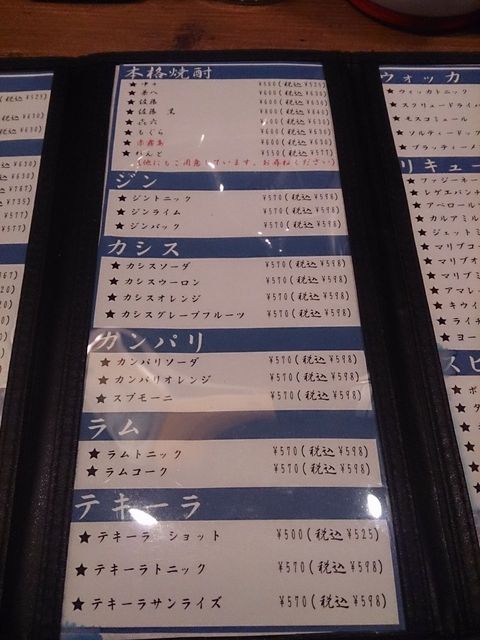 本格焼酎
¥500(税込 ¥525)
★ 兼八 ¥600(税込 ¥630)
★ 佐藤 ¥600(税込 ¥630)
★ 佐藤 黒 ¥600(税込 ¥630)
★ ¥600(税込 ¥630)
★ もぐら ¥600(税込 ¥630)
★ 赤霧島 ¥600(税込 ¥630)
★ れんと ¥550(税込 ¥577)
(他にもご用意しています。お尋ねください)
ジン
★ ジントニック ¥570(税込 ¥598)
★ ジンライム ¥570(税込 ¥598)
★ ジンバック ¥570(税込 ¥598)
カシス
★ カシスソーダ ¥570(税込 ¥598)
★ カシスウーロン ¥570(税込 ¥598)
★ カシスオレンジ ¥570(税込 ¥598)
★ カシスグレープフルーツ ¥570(税込 ¥598)
カンパリ
★ カンパリソーダ ¥570(税込 ¥598)
★ カンパリオレンジ ¥570(税込 ¥598)
★ スプモーニ ¥570(税込 ¥598)
ラム
★ ラムトニック ¥570(税込 ¥598)
★ ラムコーク ¥570(税込 ¥598)
テキーラ
★ テキーラ ショット ¥500(税込 ¥525)
★ テキーラトニック ¥570(税込 ¥598)
★ テキーラサンライズ ¥570(税込 ¥598)
ウォッカ
★ ウォッカトニック
★ スクリュードライバ
★ モスコミュール
★ ソルティードッグ
★ ブラッディーメ
リキュー
★ ファジーネー
★ レゲエパンチ
★ アペロール
★ カルアミル
★ ジェット
★ マリブコ
★ マリブオ
★ マリブミ
★ アマレ
★ キウイ
★ ライチ
★ ヨー
スピ